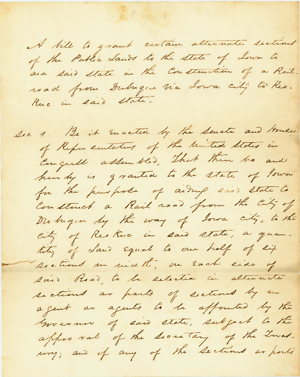 A bill to grant certain alternate sections
of the Public Lands to the state of Iowa to
aid said state in the Construction of a Rail-
road from Dubuque via Iowa city to Keo-
kuc in said state.
Sec 1. Be it enacted by the Senate and House
of Representatives of the United States in
Congress assembled, That there be and
hereby is granted to the state of Iowa
for the purpose of aiding said state to
Construct a Rail road from the City of
Dubuque by the way of Iowa city, to the
city of Keokuc in said state, a quan-
tity of Land equal to one half of six
sections in width, on each side of
said Road, to be selected in alternate
sections or parts of sections by an
agent or agents to be appointed by the
Governor of said state, subject to the
approval of the Secretary of the Treas-
ury; and if any of the sections or parts